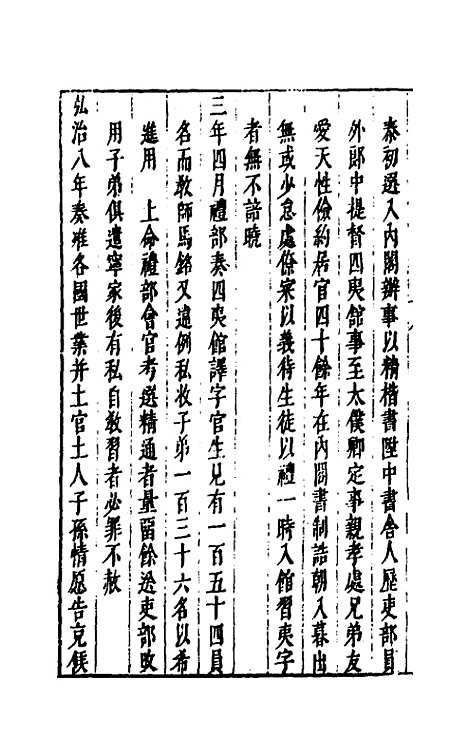 泰初選入內閣辦事以精楷書陞中書舍人歷吏部員
外郎中提督四夷館事至太僕卿定事親孝處兄弟友
愛天性儉約居官四十餘年在內閣書制誥朝入暮出
無或少怠處僚寀以義待生徒以禮一時入館習夷字
者無不諳曉
三年四月禮部奏四夷館譯字官生見有一百五十四員
名而教師馬銘又違例私收子弟一百三十六名以希
進用　上命禮部會官考選精通者量留餘送吏部改
用子弟俱遣寧家後有私自教習者必罪不赦
弘治八年奏准各國世業并土官土人子孫情愿告克候